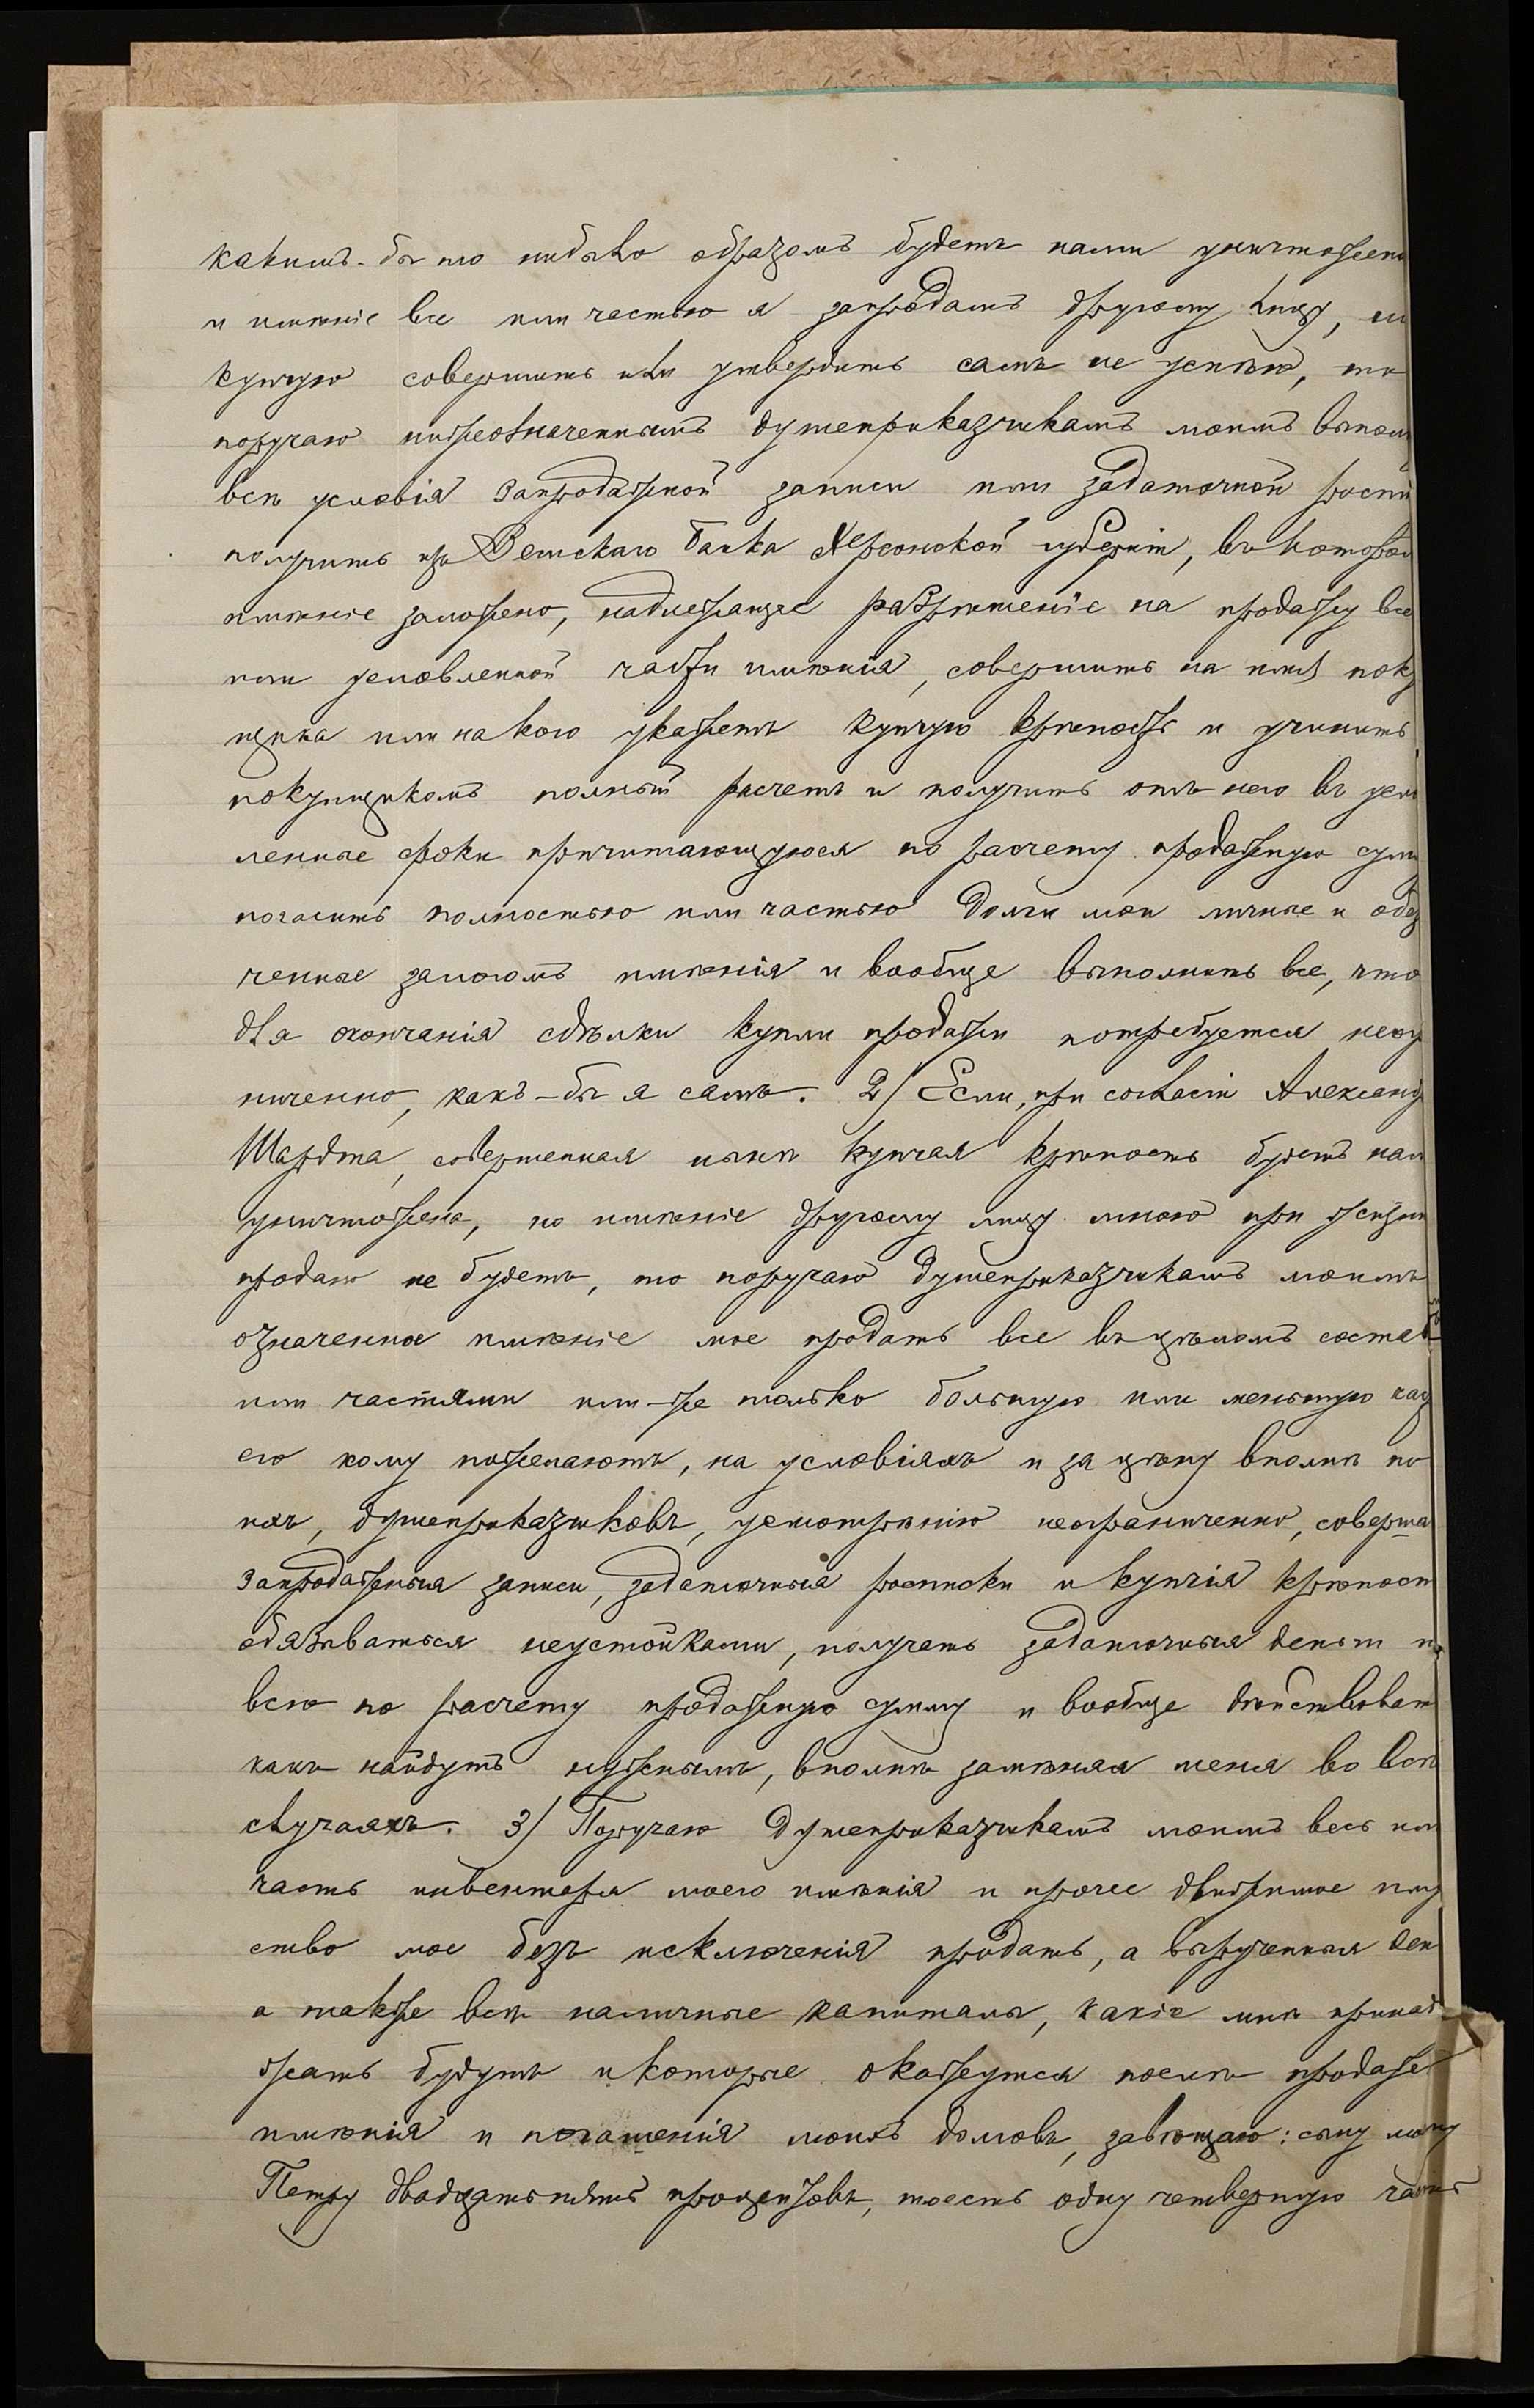 какимъ-бы то нибыло образомъ будетъ нами уничтожена
и имѣніе все или частью я запродамъ другому лицу, но
купчую совершить или утвердить самъ не успѣю, то
поручаю нижеозначеннымъ душеприказчикамъ моимъ выполн
всѣ условія запродажной записи или задаточной роспи
получить изъ Земскаго банка Херсонской губерніи, въ которомъ
имѣніе заложено, надлежащее разрѣшеніе на продажу все
или условленной части имѣнія, совершить на имя поку
щика или на кого укажетъ купчую крѣпость и учинить
покупщикомъ полный расчетъ и получить отъ него въ усло
ленные сроки причитающуюся по расчету продажную сумм
погасить полностью или частью долги мои личные и обез
ченные залогомъ имѣнія и вообще выполнить все, что
для окончанія сдѣлки купли продажи потребуется неогр
ниченно, какъ-бы я самъ. 2/ Если, при согласіи Александр
Шардта, совершенная нынѣ купчая крѣпость будетъ нами
уничтожена, но имѣніе другому лицу мною при жизни
продано не будетъ, то поручаю душеприказчикамъ моимъ
означенное имѣніе мое продать все въ цѣломъ состав
или частями или-же только большую или меньшую час
его кому пожелаютъ, на условіяхъ и за цѣну вполнѣ по
ихъ, душеприказчиковъ, усмотрѣнію неограниченно, соверша
запродажныя записи, задаточныя росписки и купчія крѣпост
обязываться неустойками, получать задаточныя деньги и
всю по расчету продажную сумму и вообще дѣйствоват
какъ найдутъ нужнымъ, вполнѣ замѣняя меня во всѣ
случаяхъ. 3/ Поручаю душеприказчикамъ моимъ весь или
часть инвентаря моего имѣнія и прочее движимое иму
ство мое безъ исключенія продать, а вырученныя ден
а также всѣ наличные капиталы, какіе мнѣ принад
жать будутъ и которые окажутся послѣ продажи
имѣнія и погашенія моихъ долговъ, завѣщаю: сыну моему
Петру двадцатьпять процентовъ, тоесть одну четвертую часть